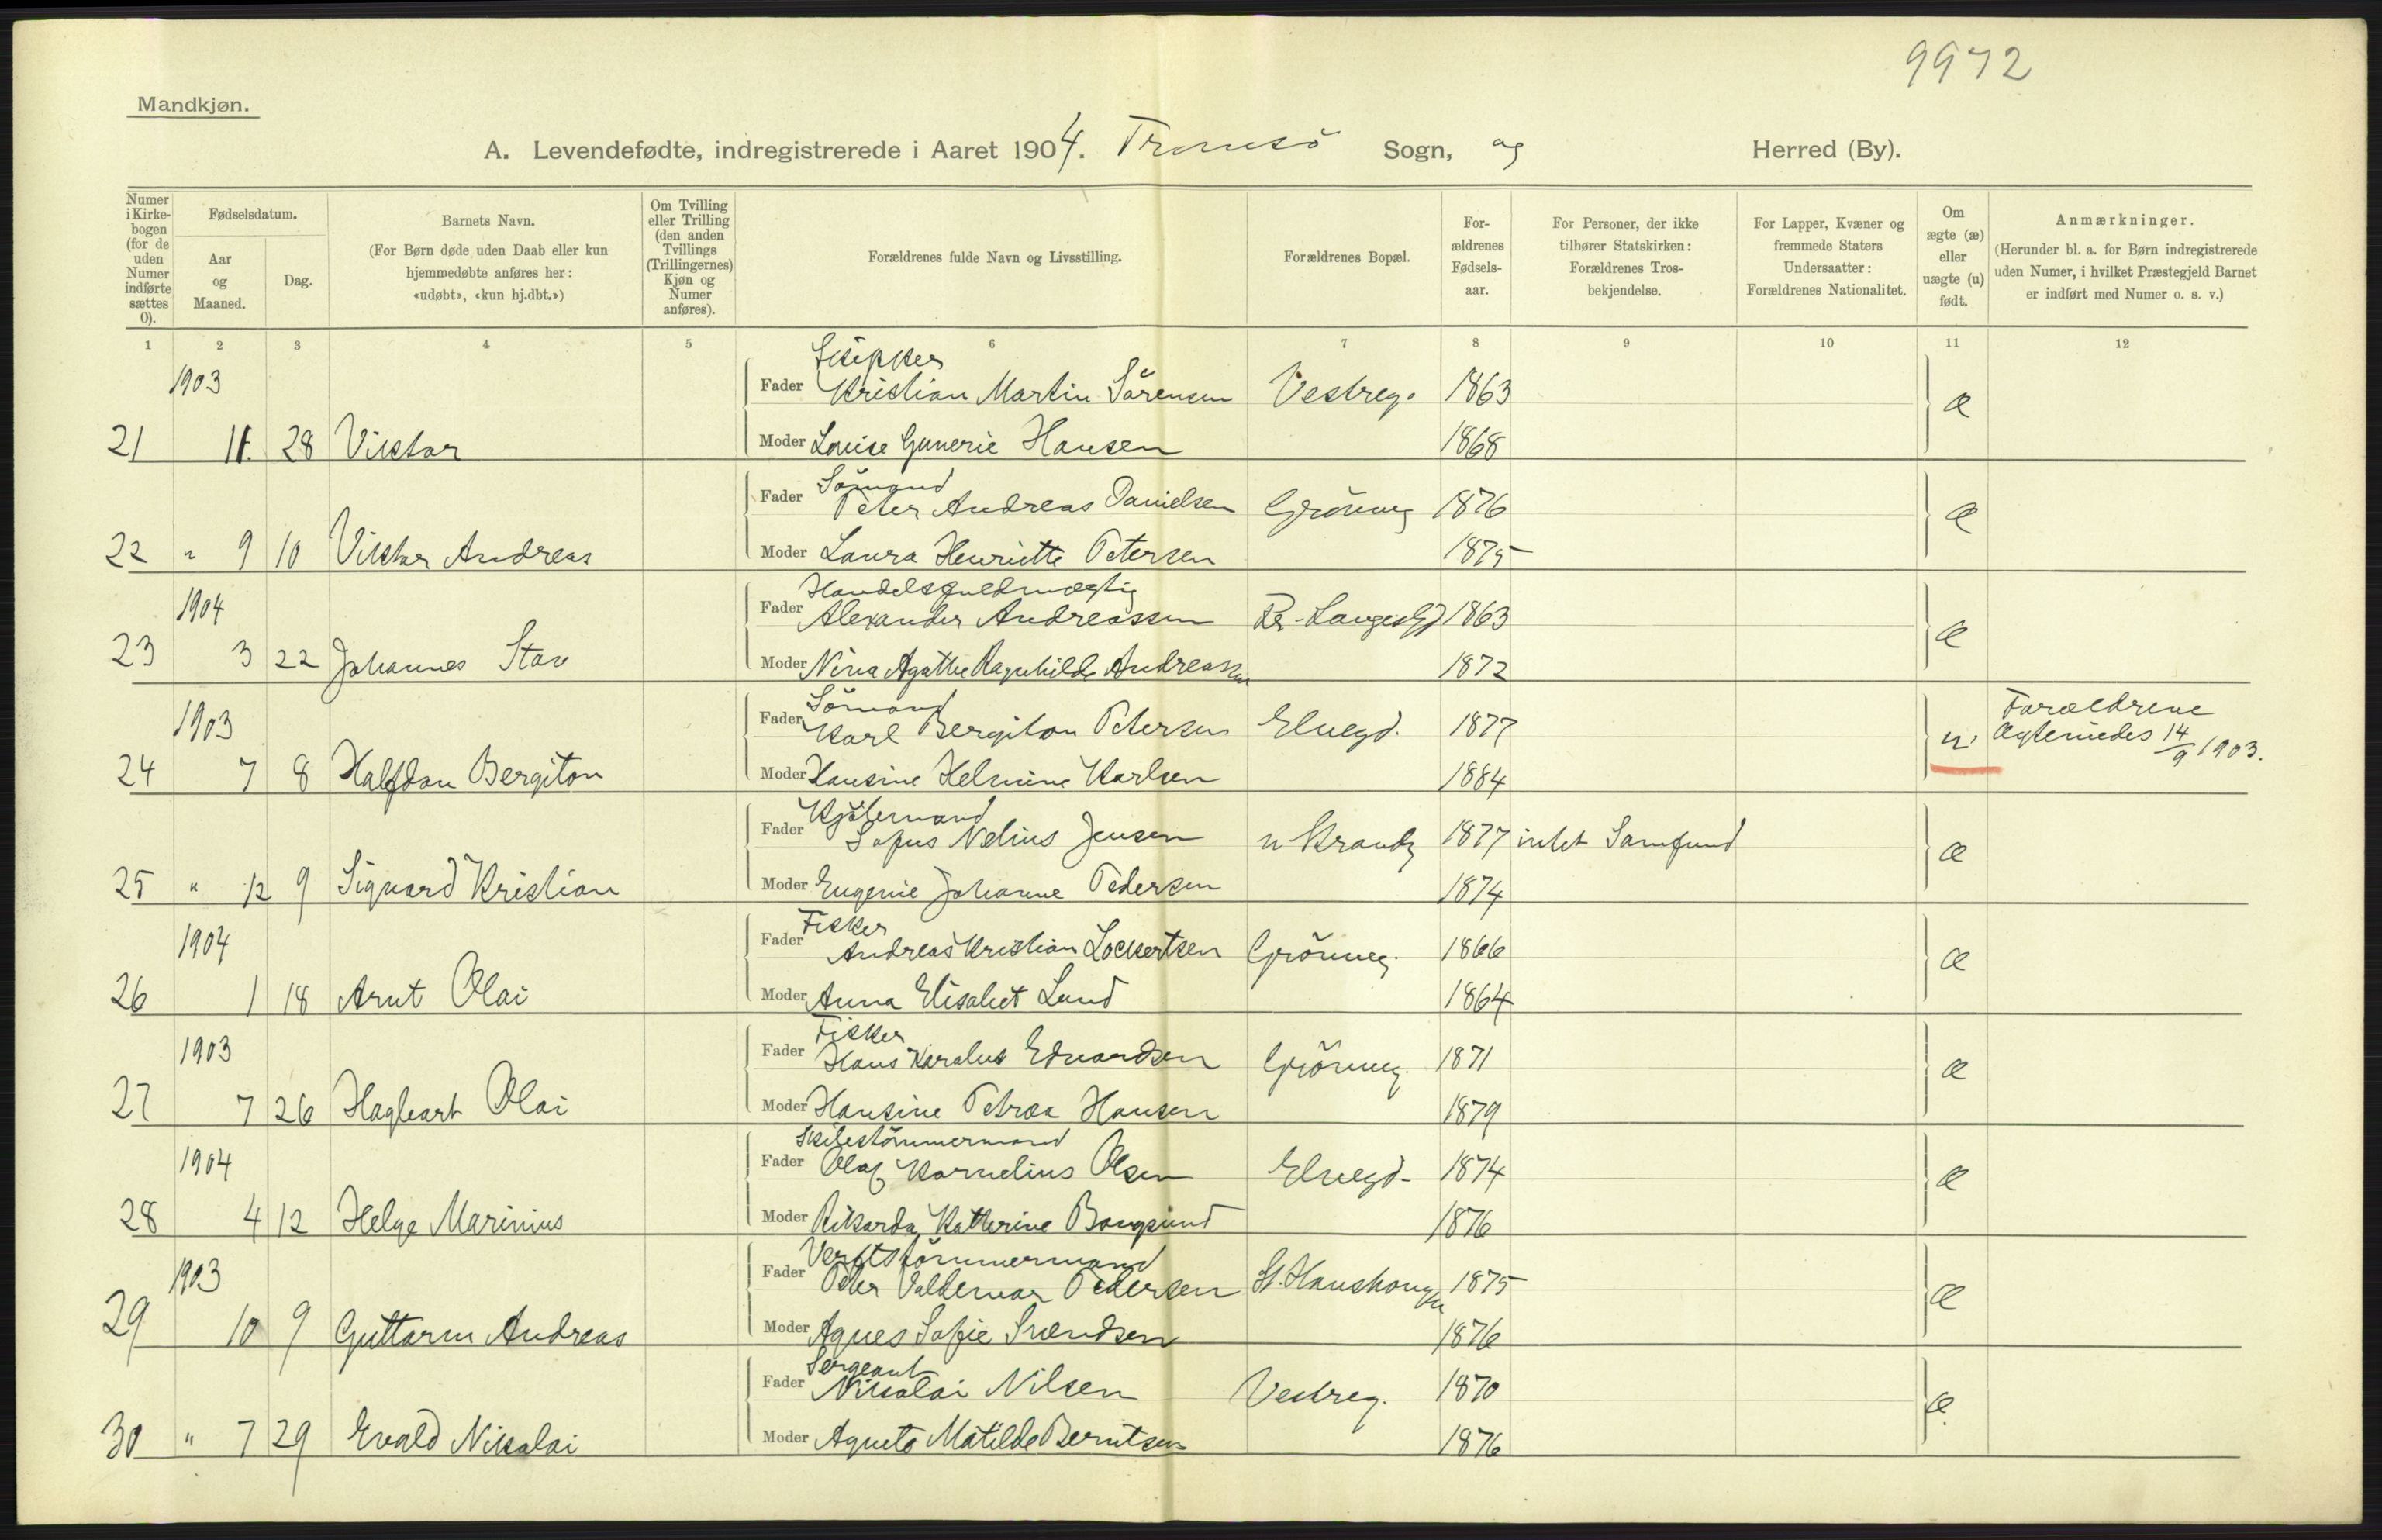 9972
Mandkjøn.
A. Levendefødte, indregistrerede i Aaret 1904. Tromsö Sogn, og Herred (By).
Numer i Kirkebogen (for de uden Numer indførte sættes 0).
Fødselsdatum.
Aar og Maaned.
Dag.
Barnets Navn.
(For Børn døde uden Daab eller kun hjemmedøbte anføres her: «udøbt», «kun hj.dbt.»)
Om Tvilling eller Trilling (den anden Tvillings (Trillingernes) Kjøn og Numer anføres).
Forældrenes fulde Navn og Livsstilling.
Forældrenes Bopæl.
Forældrenes Fødselsaar.
For Personer, der ikke tilhører Statskirken: Forældrenes Trosbekjendelse.
For Lapper, Kvæner og fremmede Staters Undersaatter: Forældrenes Nationalitet.
Om ægte (æ) eller uægte (u) født.
Anmærkninger.
(Herunder bl. a. for Børn indregistrerede uden Numer, i hvilket Præstegjeld Barnet er indført med Numer o. s. v.)
1 2 3 4 5 6 7 8 9 10 11 12
1903 Skipper
Fader Kristian Martin Sörensen Vestreg. 1863 æ
21 11. 28 Viktor Moder Louise Gunerie Hansen 1868
Sömand
Fader Peter Andreas Danielsen Grönneg 1876 æ
22 " 9 10 Viktor Andreas Moder Laura Henriette Petersen 1875
1904 Handelsfuldmægtig
Fader Alexander Andreassen 1863 æ
23 3 22 Johannes Moder Nina Agathe Ragnhilde Andreassen 1872
1903 Sömand
Fader Karl Bergiton Petersen Elvegd. 1877 u. Forældrene
Ægteviedes 14/9 1903.
24 7 8 Halfdan Bergiton Moder Hansine Helmine Karlsen 1884
Fader Sofus Nelius Jensen n Strandg 1877 intet Samfund æ
25 " 12 9 Sigvard Kristian Moder Eugenie Johanne Pedersen 1874
1904 Fisker
Fader Andreas Kristian Lockertsen Grönneg. 1866 æ
26 1 18 Arnt Olai Moder Anna Elisabet Lund 1864
1903 Fisker
Fader Hans Karolus Edvardsen Grönneg. 1871 æ
27 7 26 Hagbart Olai Moder Hansine Petrea Hansen 1879
1904 Skibstömmermand
Fader Olaf Kornelius Olsen Elvegd. 1874 æ
28 4 12 Helge Marinius Moder Rikarda Katherine 1876
1903 Verftstömmermand
Fader Peter Valdemar Pedersen St. Hanshougen 1875 æ
29 10 9 Guttorm Andreas Moder Agnes Sofie Svendsen 1876
Sergeant
Fader Nikolai Nilsen Vestreg. 1870 æ
30 " 7 29 Evald Nikolai Moder Agneta Matilde Berntsen 1876